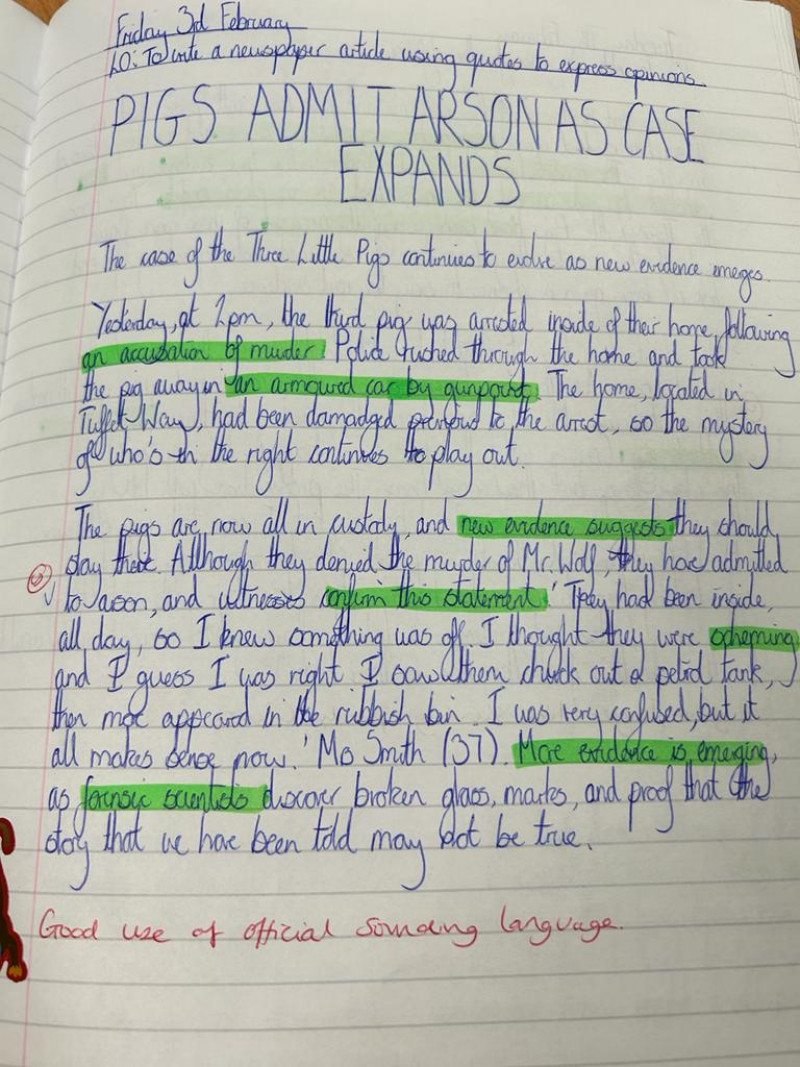 Friday 3rd February
LO: To write a newspaper article using quotes to express opinions.
PIGS ADMIT ARSON AS CASE
EXPANDS
The case of the Three Little Pigs continues to evolve as new evidence emeges.
Yesterday, at 2pm, the third pig was arrested inside of their home, following
an accusation of murder. Police rushed through the home and took
the pig away in an armoured car by gunpoint. The home, located in
Tuffet Way, had been damadged to the arrest, so the mystery
of who's in the right continues to play out.
The pigs are now all in custody, and new evidence suggests they should
stay there. Allthough they denied the murder of Mr. Wolf, they have admitted
to arson, and witnesses confirm this statement. 'They had been inside,
all day, so I knew something was off. I thought they were scheming
and I guess I was right. I saw them chuck out a petrol tank,
then more appeared in the rubbish bin. I was very confused, but it
all makes sense now.' Ms Smith (37). More evidence is emerging,
as forensic scientists discover broken glass, marks, and proof that the
story that we have been told may not be true.
Good use of official sounding language.